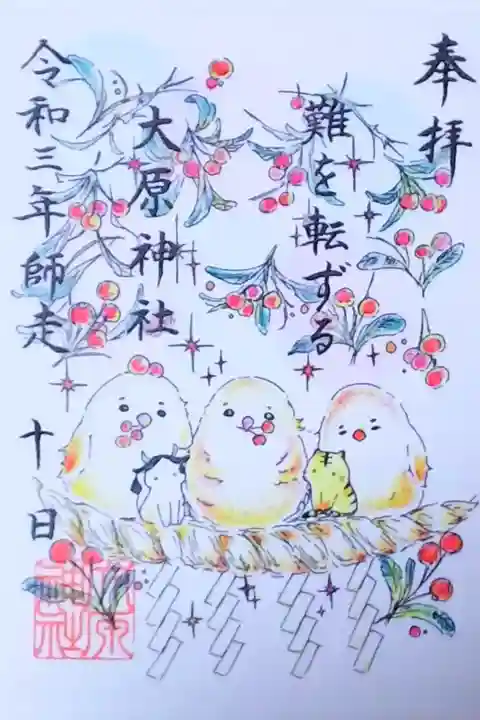 奉拝
難を転ずる
大原神社
令和三年師走 十日